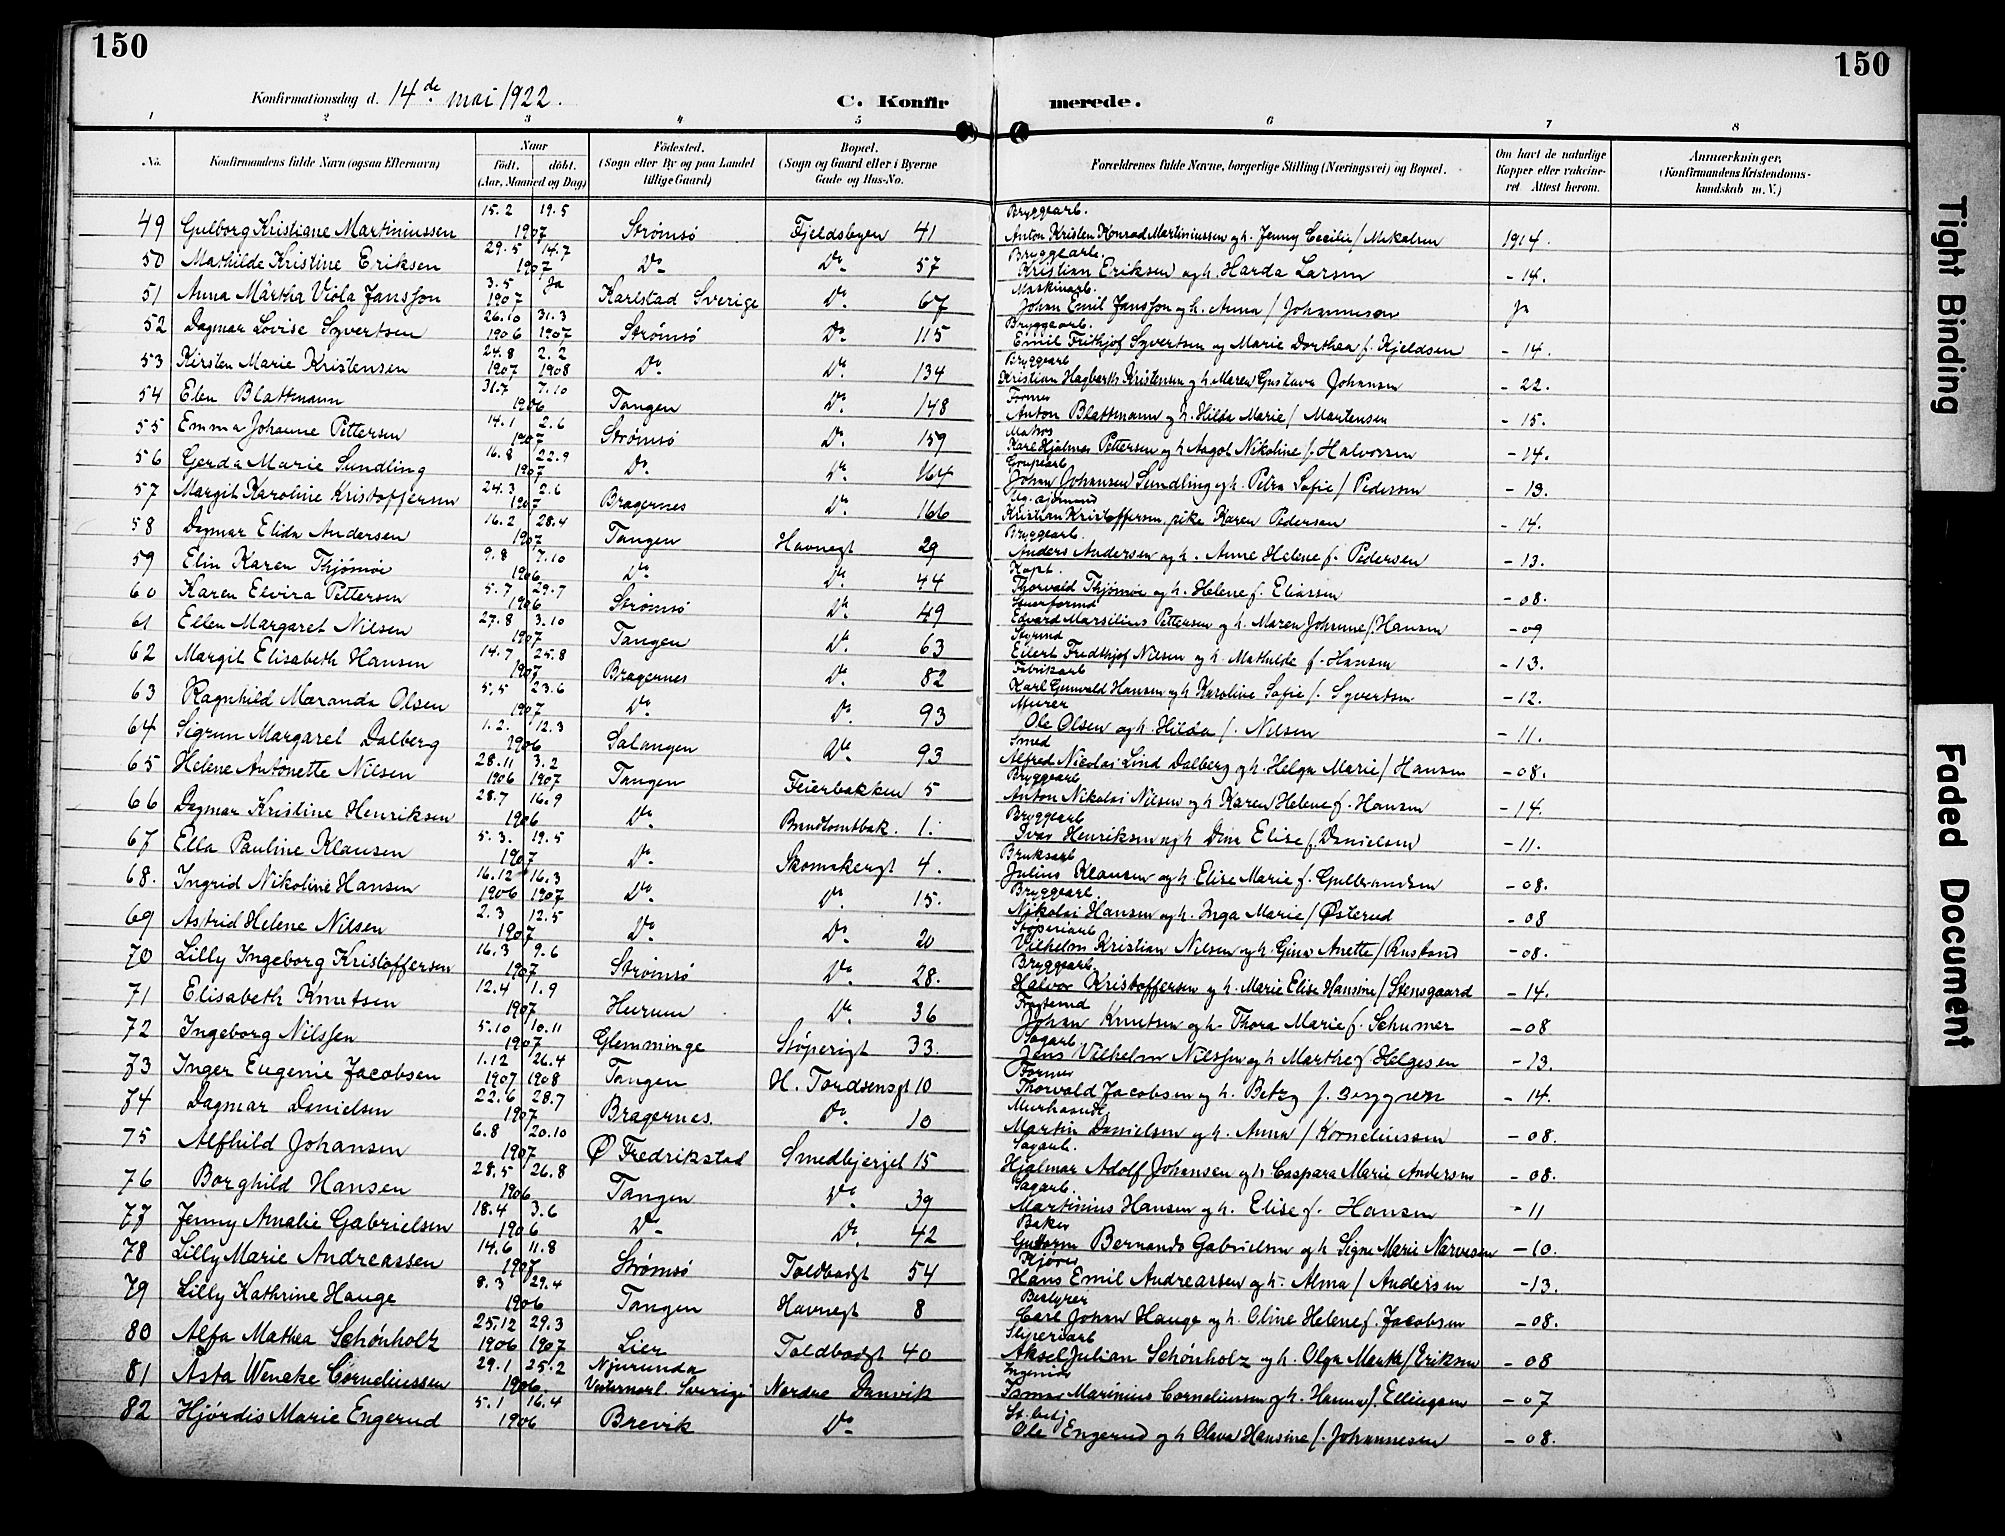 150
150
Konfirmationsdag d. 14de mai 1922.
C. Konfir
merede.
1 2 3 4 5 6 7 8
No. Konfirmandens fulde Navn (ogsaa Efternavn) Naar født. døbt. (Aar, Maaned og Dag) Fødested. (Sogn eller By og paa Landet tillige Gaard) Bopæl. (Sogn og Gaard eller i Byerne Gade og Hus-No. Forældrenes fulde Navne, borgerlige Stilling (Næringsvei) og Bopæl. Om havt de naturlige Kopper eller vakcineret. Attest herom. Anmærkninger. (Konfirmandens Kristendomskundskab m. V.)
49 Gulborg Kristiane Martiniussen 15.2 19.5 1907 Strømsø Fjeldsbyen 41 Bryggearb. Anton Kristen Konrad Martiniussen og h. Jenny Cecilie f. Mikalsen 1914.
50 Mathilde Kristine Eriksen 29.5 14.7 1907 Do Do 57 Bryggearb. Kristian Eriksen og h. Harda Larsen - 14.
51 Anna Märtha Viola Jansson 3.5 1907 Ja Karlstad Sverige Do 67 Maskinarb. Johan Emil Jansson og h. Anna f. Johannesen Ja
52 Dagmar Lovise Syvertsen 26.10 1906 31.3 1907 Strømsø Do 115 Bryggearb. Emil Frithjof Syvertsen og Marie Dorthea f. Kjeldsen - 14.
53 Kirsten Marie Kristensen 24.8 1907 2.2 1908 Do Do 134 Bryggearb Kristian Hagbarth Kristensen og h. Maren Gustava Johansen - 22.
54 Elen Blattmann 31.7 7.10 1906 Tangen Do 148 Former Anton Blattmann og h. Hilda Marie f. Martensen - 15.
55 Emma Johanne Pettersen 14.1 2.6 1907 Strømsø Do 159 Matros Karl Hjalmar Pettersen og h. Aagot Nikoline f. Halvorsen - 14.
56 Gerda Marie Sundling 16.8 22.9 1907 Do Do 164 Johan Johansen Sundling og h. Petra Sofie f. Pedersen - 13.
57 Margit Karoline Kristoffersen 24.3 2.6 1907 Bragernes Do 166 Ug. sjømand Kristian Kristoffersen, pike Karen Pedersen - 14.
58 Dagmar Elida Andersen 16.2 28.4 1907 Tangen Havnegt 29 Bryggearb. Anders Andersen og h. Anne Helene f. Pedersen - 13.
59 Elin Karen Thjømøe 9.8 7.10 1906 Do Do 44 Kapt. Thorvald Thjømøe og h. Helene f. Eliassen - 08.
60 Karen Elvira Pettersen 5.7 29.7 1906 Strømsø Do 49 Stuerformd Edvard Marsilius Pettersen og h. Maren Johanne f. Hansen - 09
61 Ellen Margaret Nilsen 27.8 3.10 1907 Tangen Do 63 Styrmd Eilert Fredthjof Nilsen og h. Mathilde f. Hansen - 13.
62 Margit Elisabeth Hansen 14.7 25.8 1907 Bragernes Do 82 Fabrikarb Karl Gunvald Hansen og h Karoline Sofie f. Syvertsen - 12.
63 Ragnhild Maranda Olsen 5.5 23.6 1907 Do Do 93 Murer Ole Olsen og h. Hilda f. Nilsen - 11.
64 Sigrun Margaret Dalberg 1.2. 12.3 1906 Salangen Do 93 Smed Alfred Nicolai Lind Dalberg og h. Helga Marie f. Hansen - 08.
65 Helene Antonette Nilsen 28.11 1906 3.2 1907 Tangen Feierbakken 5 Bryggearb Anton Nikolai Nilsen og h Karen Helene f. Hansen - 14.
66 Dagmar Kristine Henriksen 28.7 16.9 1906 Do Brandtomtbak. 1. Bryggearb Ivar Henriksen og h Dina Elise f. Danielsen - 11.
67 Ella Pauline Klausen 5.3. 19.5 1907 Do Skomakergt 4. Bruksarb Julius Klausen og h Elise Marie f. Gulbrandsen - 08.
68. Ingrid Nikoline Hansen 16.12 1906 16.3 1907 Do Do 15. Bryggearb. Nikolai Hansen og h. Inga Marie f. Østerud - 08
69 Astrid Helene Nilsen 2.3 12.5 1907 Do Do 20 Støperiarb Vilhelm Kristian Nilsen og h. Gina Anette f. Rustand - 08.
70 Lilly Ingeborg Kristoffersen 16.3 9.6 1907 Strømsø Do 28. Bryggearb. Halvor Kristoffersen og h. Marie Elise Hansine f. Stensgaard - 14.
71 Elisabeth Knutsen 12.4 1.9 1907 Hurum Do 36 Johan Knutsen og h. Thora Marie f. Schumer - 08
72 Ingeborg Nilssen 5.10 10.11 1907 Glemminge Støperigt 33. Sagarb. Jens Vilhelm Nilssen og h Marthe f Helgesen - 13.
73 Inger Eugenie Jacobsen 1.12 1907 26.4 1908 Tangen H. Tordsensgt 10 Former Thorvald Jacobsen og h. Betzy f. Berggren - 14.
74 Dagmar Danielsen 22.6 28.7 1907 Bragernes. Do 10 Murhaandt. Martin Danielsen og h. Anna f. Korneliussen - 08.
75 Alfhild Johansen 6.8 20.10 1907 Ø Fredrikstad Smedbjerjet 15 Sagarb. Hjalmar Adolf Johansen og h Caspara Marie Andersen - 08.
76 Borghild Hansen 28.5 26.8 1906 Tangen Do 39 Sagarb. Martinius Hansen og h. Elise f. Hansen - 11
77 Jenny Amalie Gabrielsen 18.4 3.6 1906 Do Do 42 Baker Guttorm Bernando Gabrielsen og h Signe Marie Narvesen - 10.
78 Lilly Marie Andreassen 14.6 11.8 1907 Strømsø Toldbodgt 54 Kjører Hans Emil Andreassen og h. Alma f. Andersen - 13.
79 Lilly Kathrine Hauge 8.3 29.4 1906 Tangen Havnegt 8 Bestyrer Carl Johan Hauge og h. Oline Helene f. Jacobsen - 08.
80 Alfa Mathea Schønholz 25.12 1906 29.3 1907 Lier Toldbodgt 40 Sliperiarb Aksel Julian Schønholz og h. Olga Marthe f. Eriksen - 08
81 Asta Wencke Corneliussen 29.1 25.2 1906 Njurunda Vesternorl. Sverige Nordre Danvik Ingeniør Marinius Corneliussen og h. Hanna f. Ellingsen - 07
82 Hjørdis Marie Engerud 5.1 16.4 1906 Brevik Do St. betj Ole Engerud og h Olava Hansine f. Johannesen - 08.
Tight Binding
Faded Document